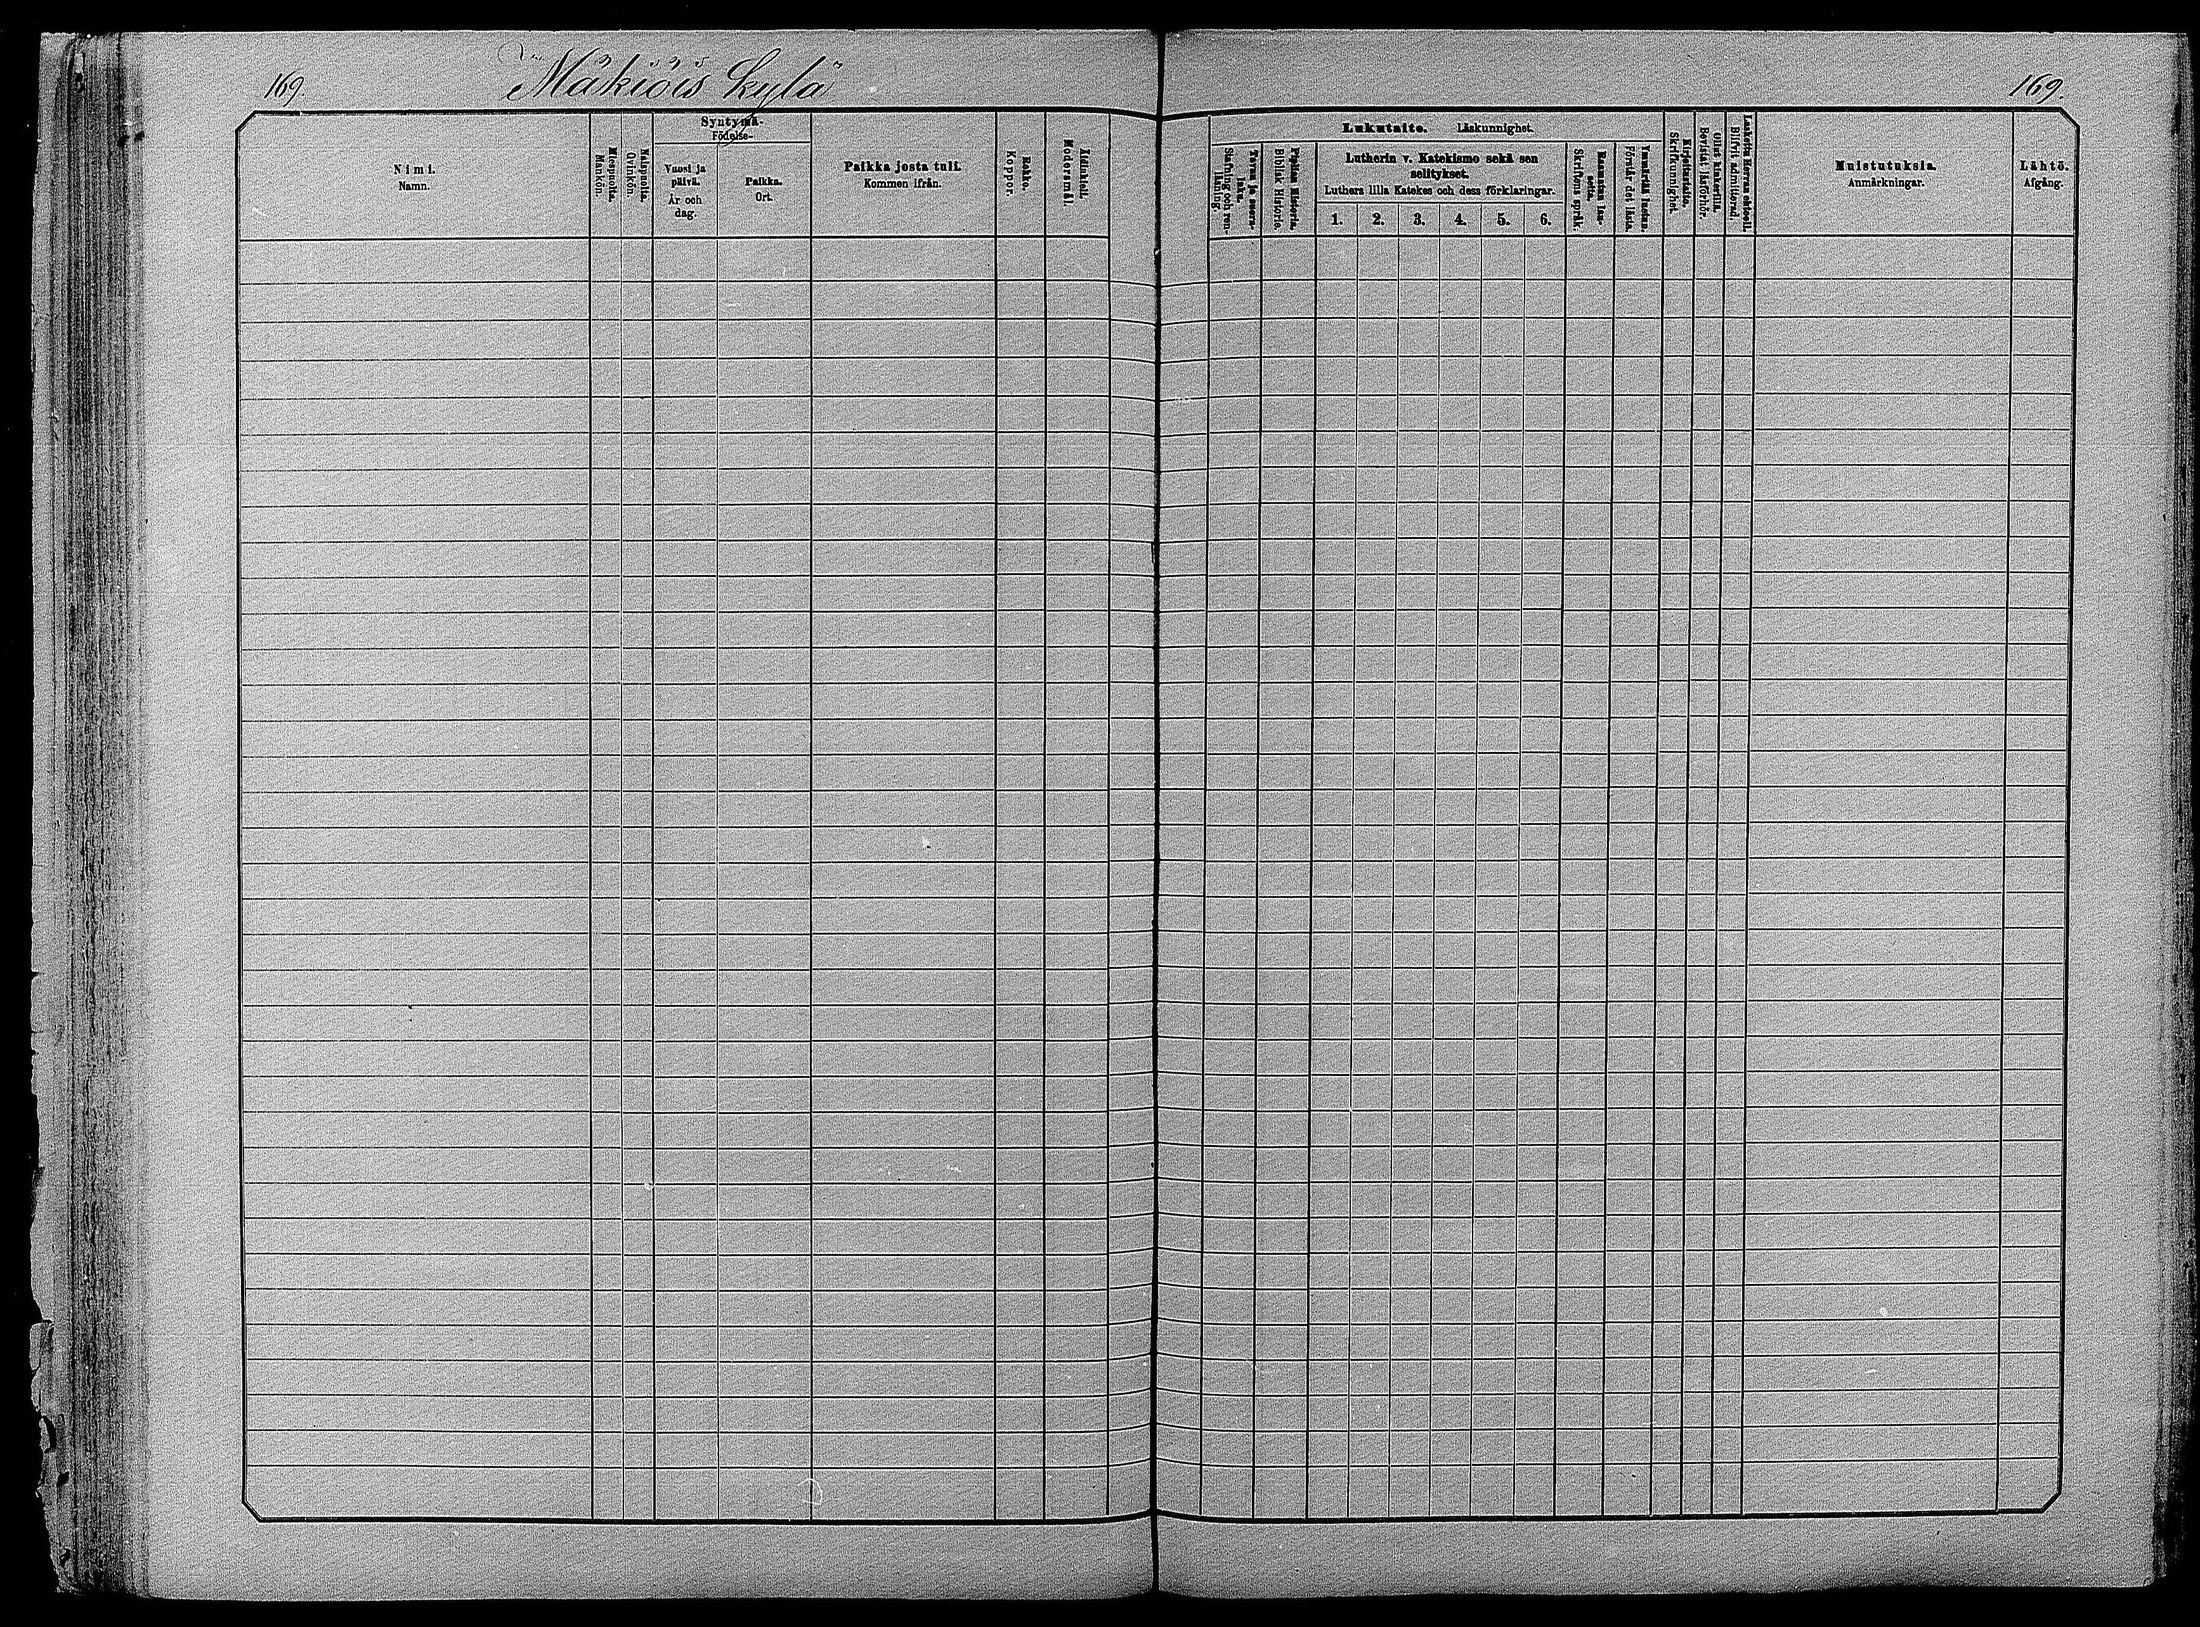 169.
Mäkiöis kylä
169.
Nimi.
Namn.
Miespuolia.
Mankön.
Naispuolia.
Qvinkön.
Syntymä-
Födelse-
Vuosi ja
päivä.
År och
dag.
Paikka.
Ort.
Paikka josta tuli.
Kommen ifrån.
Rokko.
Koppor.
Äidinkieli.
Modersmål.
Lukutaito. Läskunnighet.
Tavuu ja suora-
luku.
Stafning och ren-
läsning.
Piplian Historia.
Biblisk Historie.
Lutherin v. Katekismo sekä sen
selitykset.
Luthers lilla Katekes och dess förklaringar.
1. 2. 3. 4. 5. 6.
Raamatun lau-
seita.
Skriftens språk.
Ymmärtää luetun.
Förstår det lästa.
Kirjoitustaito.
Skrifkunnighet.
Ollut kinkerillä.
Bevistat läsförhör.
Laskettu Herran ehtooll.
Blifvit admitterad.
Muistutuksia.
Anmärkningar.
Lähtö.
Afgång.